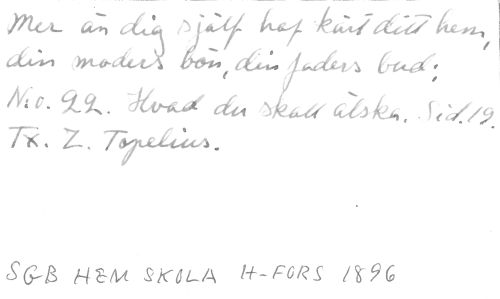 Mer än dig sjelf haf kärt ditt hem,
din moders bön, din faders bud;
N:o. 22. Hvad du skall älska. Sid. 19.
Tx. Z. Topelius.
SGB HEM SKOLA H-FORS 1896